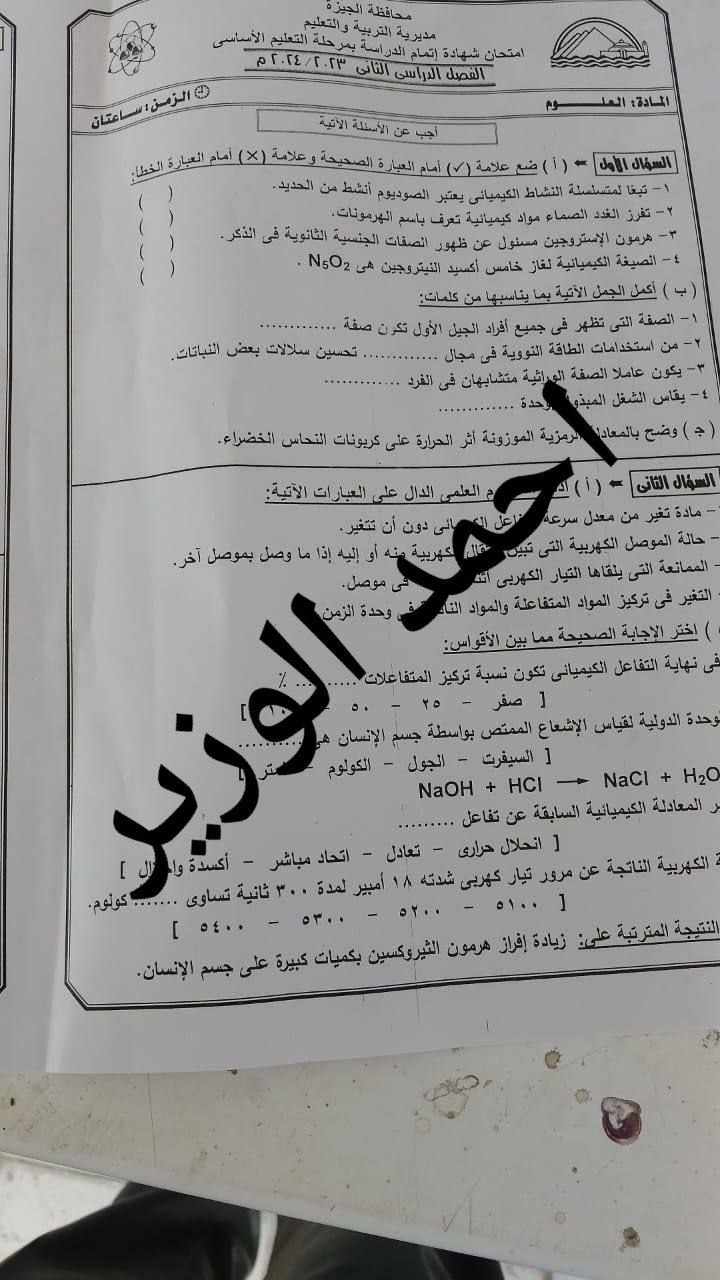 محافظة الجيزة
مديرية التربية والتعليم
امتحان شهادة إتمام الدراسة بمرحلة التعليم الأساسى
الفصل الدراسى الثانى ٢٠٢٤/٢٠٢٣ م
المادة: العلـــوم
الزمن: ساعتان
أجب عن الأسئلة الآتية
السؤال الأول ( أ ) ضع علامة (✓) أمام العبارة الصحيحة وعلامة (×) أمام العبارة الخطأ:
١- تبعًا لمتسلسلة النشاط الكيميائى يعتبر الصوديوم أنشط من الحديد. ( )
٢- تفرز الغدد الصماء مواد كيميائية تعرف باسم الهرمونات. ( )
٣- هرمون الإستروجين مسئول عن ظهور الصفات الجنسية الثانوية فى الذكر. ( )
٤- الصيغة الكيميائية لغاز خامس أكسيد النيتروجين هى N₅O₂ . ( )
( ب ) أكمل الجمل الآتية بما يناسبها من كلمات:
١- الصفة التى تظهر فى جميع أفراد الجيل الأول تكون صفة .............
٢- من استخدامات الطاقة النووية فى مجال ............. تحسين سلالات بعض النباتات.
٣- يكون عاملا الصفة الوراثية متشابهان فى الفرد .............
٤- يقاس الشغل المبذول بوحدة .............
( ج ) وضح بالمعادلة الرمزية الموزونة أثر الحرارة على كربونات النحاس الخضراء.
السؤال الثانى ( أ ) العلمى الدال على العبارات الآتية:
- مادة تغير من معدل سرعة التفاعل الكيميائى دون أن تتغير.
- حالة الموصل الكهربية التى تبين انتقال الكهربية منه أو إليه إذا ما وصل بموصل آخر.
- الممانعة التى يلقاها التيار الكهربى فى موصل.
- التغير فى تركيز المواد المتفاعلة والمواد الناتجة فى وحدة الزمن
) اختر الإجابة الصحيحة مما بين الأقواس:
فى نهاية التفاعل الكيميائى تكون نسبة تركيز المتفاعلات .......... ٪
[ صفر - ٢٥ - ٥٠ - ]
الدولية لقياس الإشعاع الممتص بواسطة جسم الإنسان هى ..........
[ السيفرت - الجول - الكولوم - ]
NaOH + HCl → NaCl + H₂O
المعادلة الكيميائية السابقة عن تفاعل .........
[ انحلال حرارى - تعادل - اتحاد مباشر - أكسدة ]
الكهربية الناتجة عن مرور تيار كهربى شدته ١٨ أمبير لمدة ٣٠٠ ثانية تساوى ....... كولوم.
[ ٥١٠٠ - ٥٢٠٠ - ٥٣٠٠ - ٥٤٠٠ ]
النتيجة المترتبة على: زيادة إفراز هرمون الثيروكسين بكميات كبيرة على جسم الإنسان.
احمد الوزير